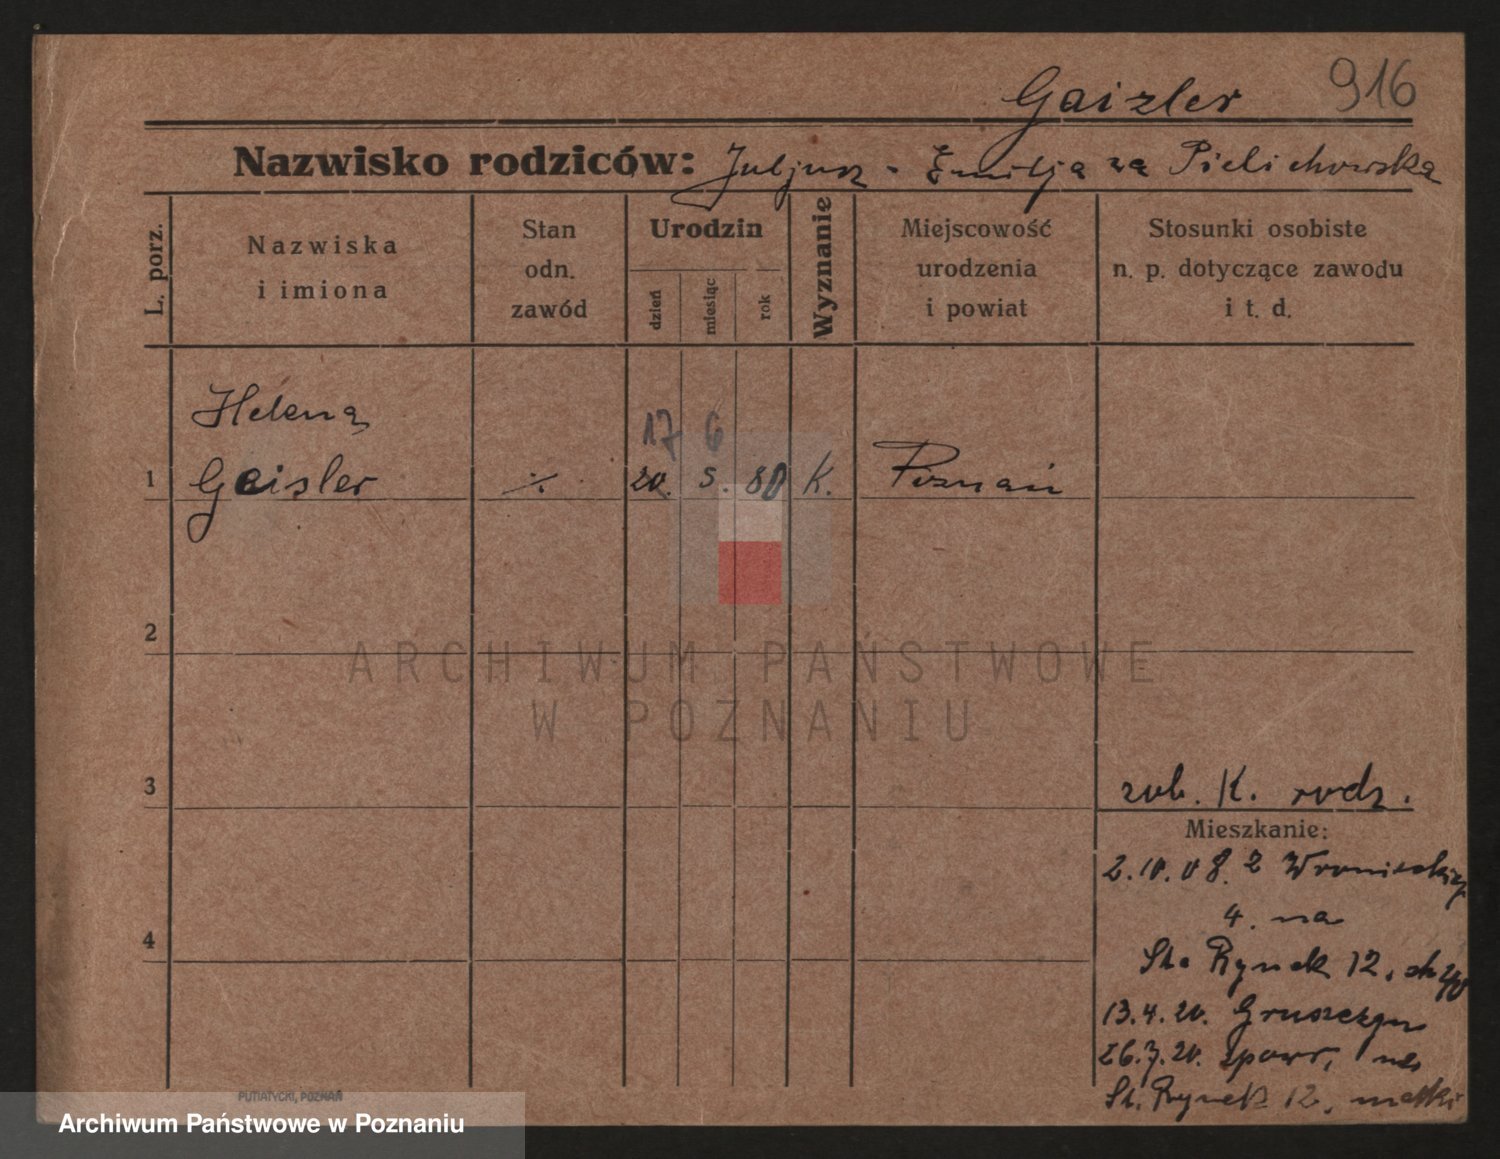 Gaizler 916
Nazwisko rodziców: Juljusz - Emilja za Pielichowska
L. porz.
Nazwiska
i imiona
Stan
odn.
zawód
Urodzin
dzień
miesiąc
rok
Wyznanie
Miejscowość
urodzenia
i powiat
Stosunki osobiste
n. p. dotyczące zawodu
i t. d.
Helena
17 6
1 Geisler ./. 20. 5. 80 K. Poznań
2
ARCHIWUM PAŃSTWOWE
W POZNANIU
3
zob. K. rodz.
Mieszkanie:
2.10.08. Z Wroniecki
4. na
4
St. Rynek 12.
13.4.20.
26.7.20. spowr, na
St. Rynek 12, matki
PUTIATYCKI, POZNAŃ
Archiwum Państwowe w Poznaniu